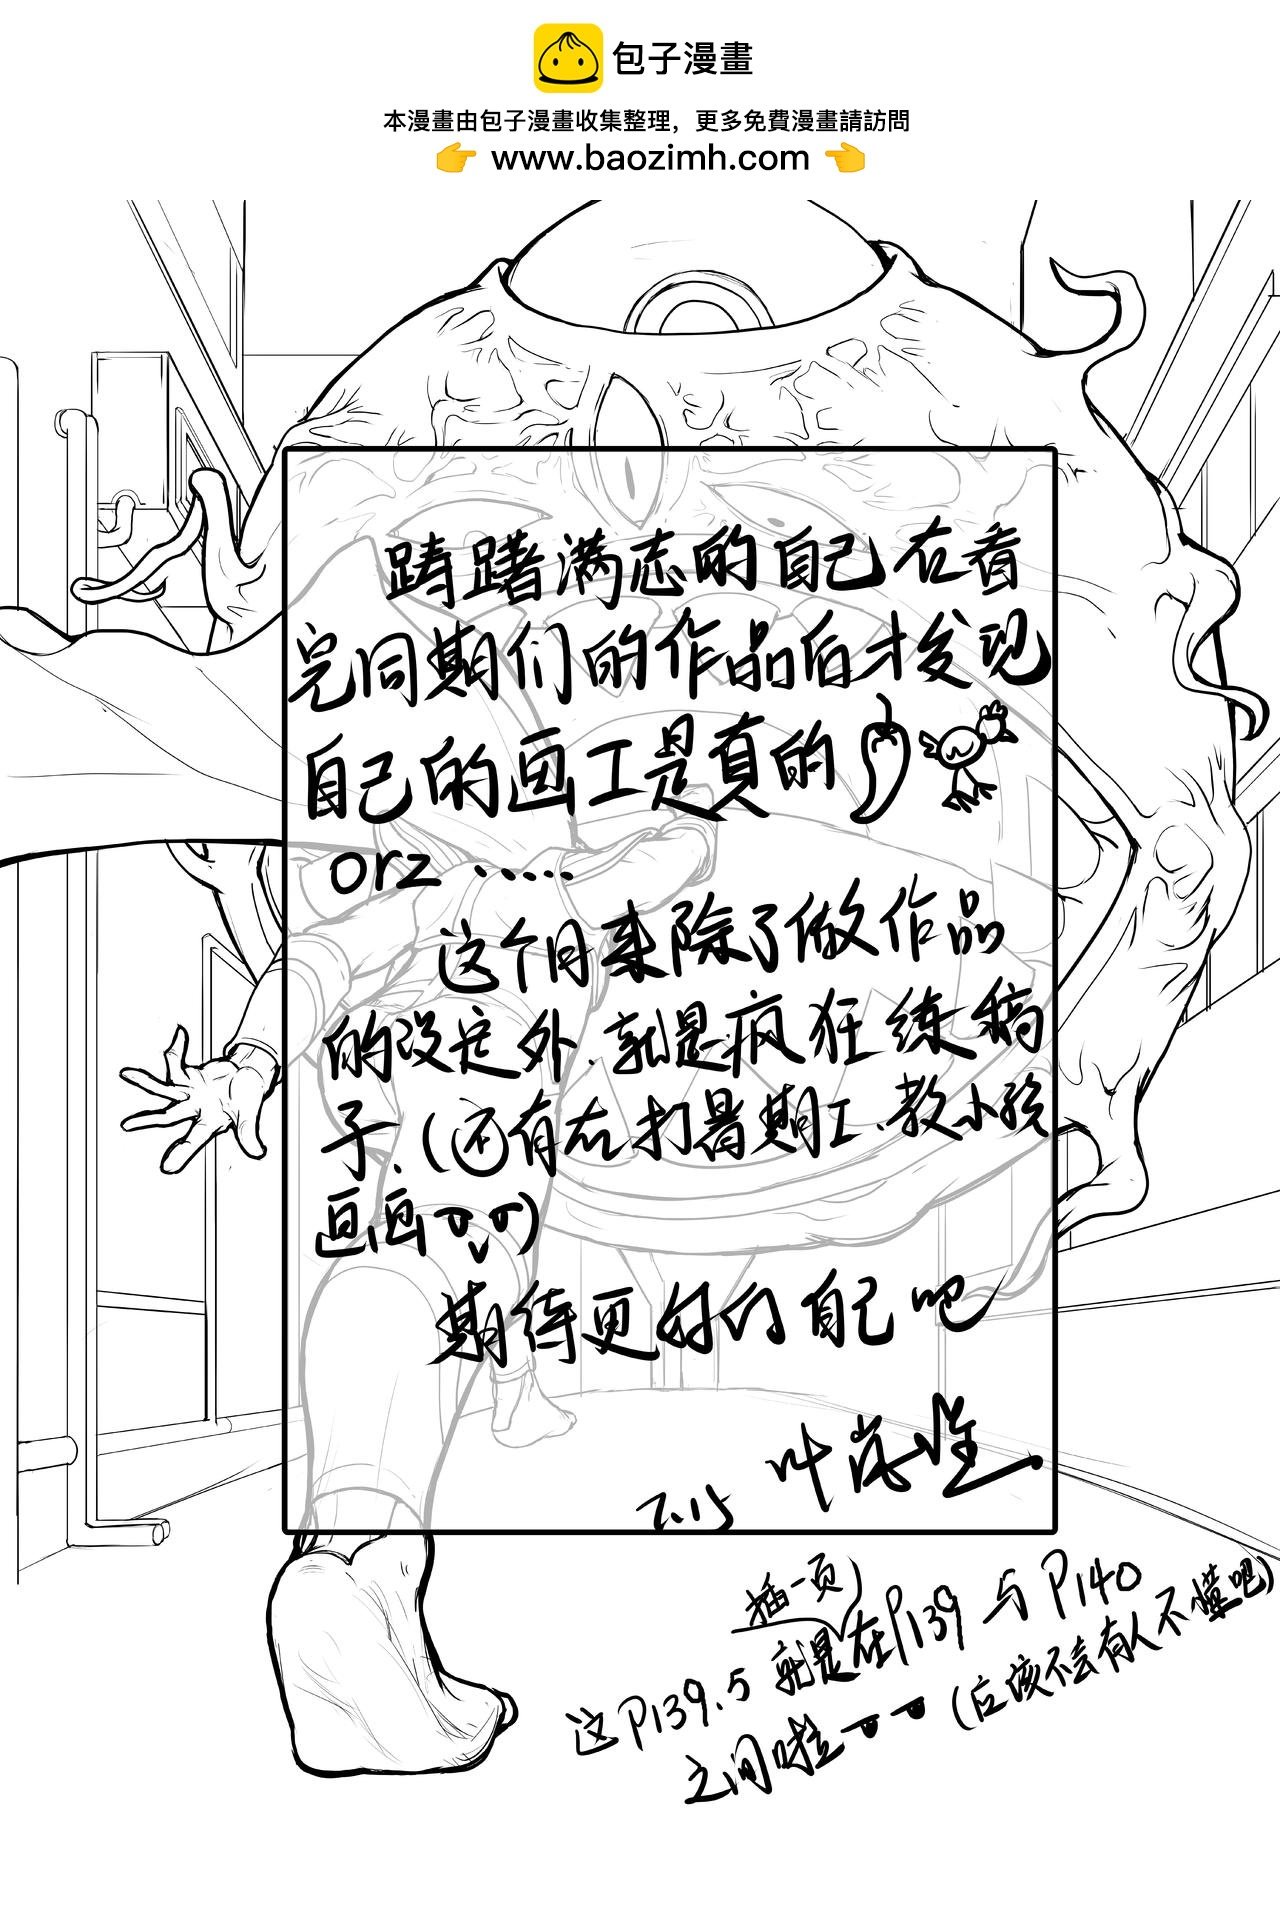 包子漫畫
本漫畫由包子漫畫收集整理，更多免費漫畫請訪問
www.baozimh.com
踌躇满志的自己在看
完同期们的作品后才发现
自己的画工是真的
orz ......
这个月来除了做作品
的设定外、就是疯狂练稿
子、(还有在打暑期工、教小孩
画画)
期待更好的自己吧
叶岚
7.15
插一页
这P139.5就是在P139与P140
之间啦(应该不会有人不懂吧)